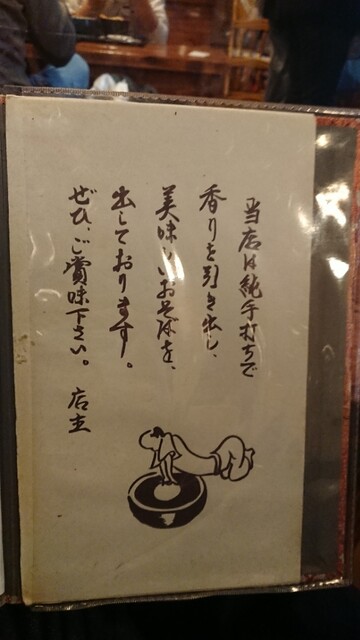 当店は純手打ちで
香りを引き出し、
美味しいおそばを、
出しております。
ぜひ、ご賞味下さい。 店主